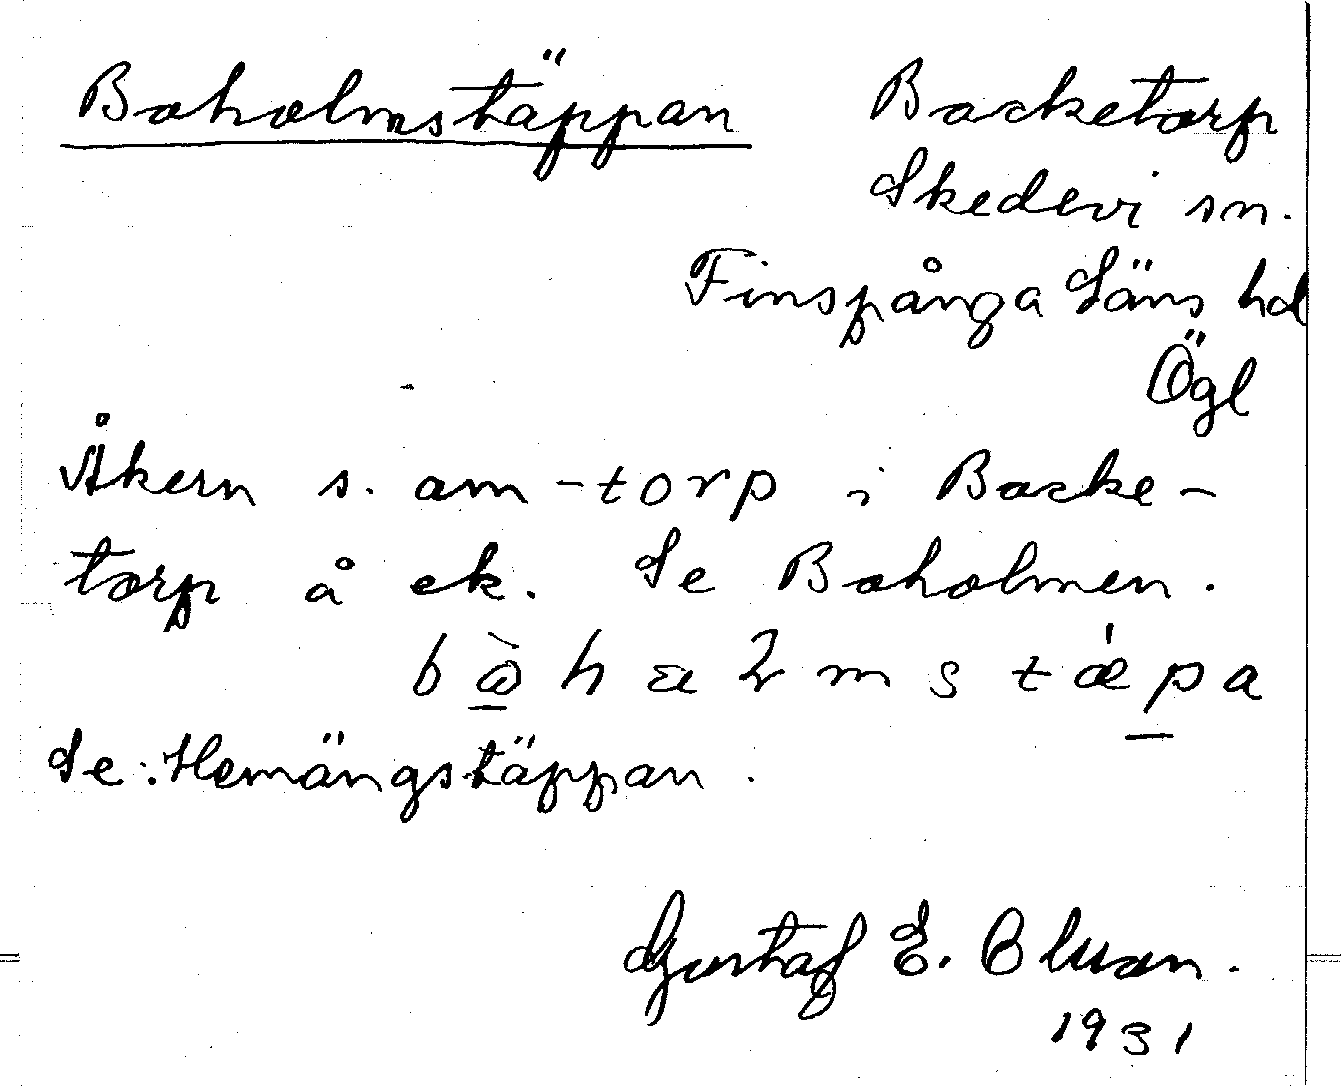 Boholmstäppan Backetorp
Skedevi sn.
Finspånga Läns hd
Ögl
Åkern s. om -torp i Backe-
torp å ek. Se Boholmen.
Se: Hemängstäppan.
Gustaf E. Olsson.
1931